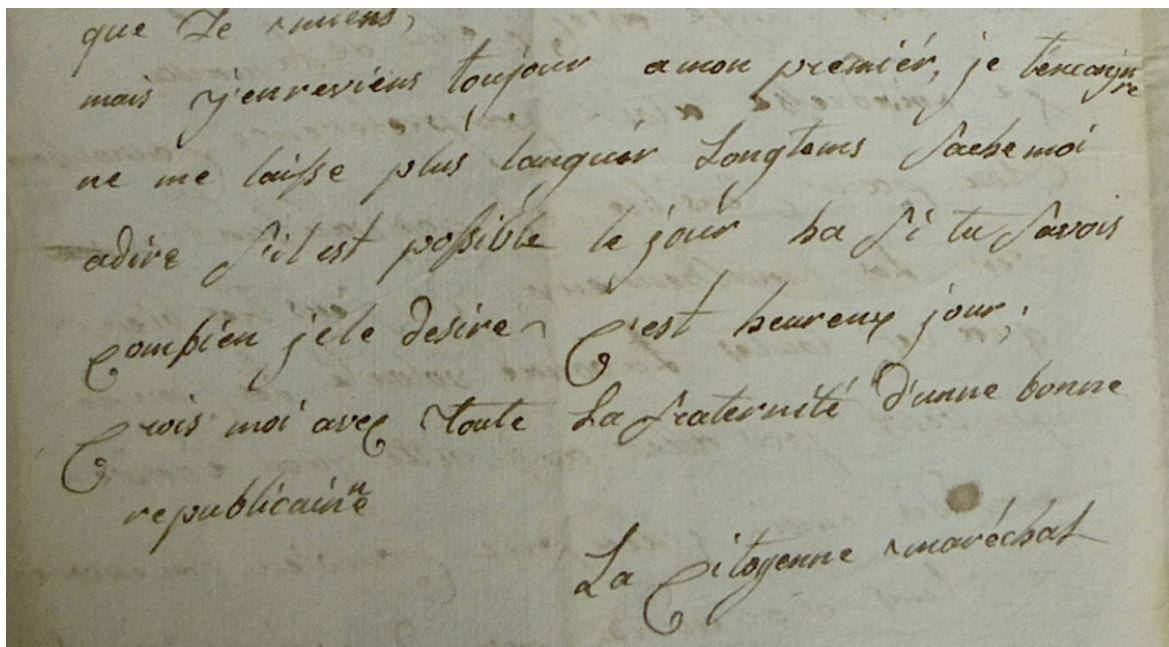 que Je
mais j'enreviens toujour amon premiér, je
ne me laisse plus languir Longtems Sache moi
adire S'il est possible le jour ha Si tu Savois
Combien je le desire C'est heureux jour,
Crois moi avec toute La fraternité d'unne bonne
republicainne
La Citoyenne maréchal